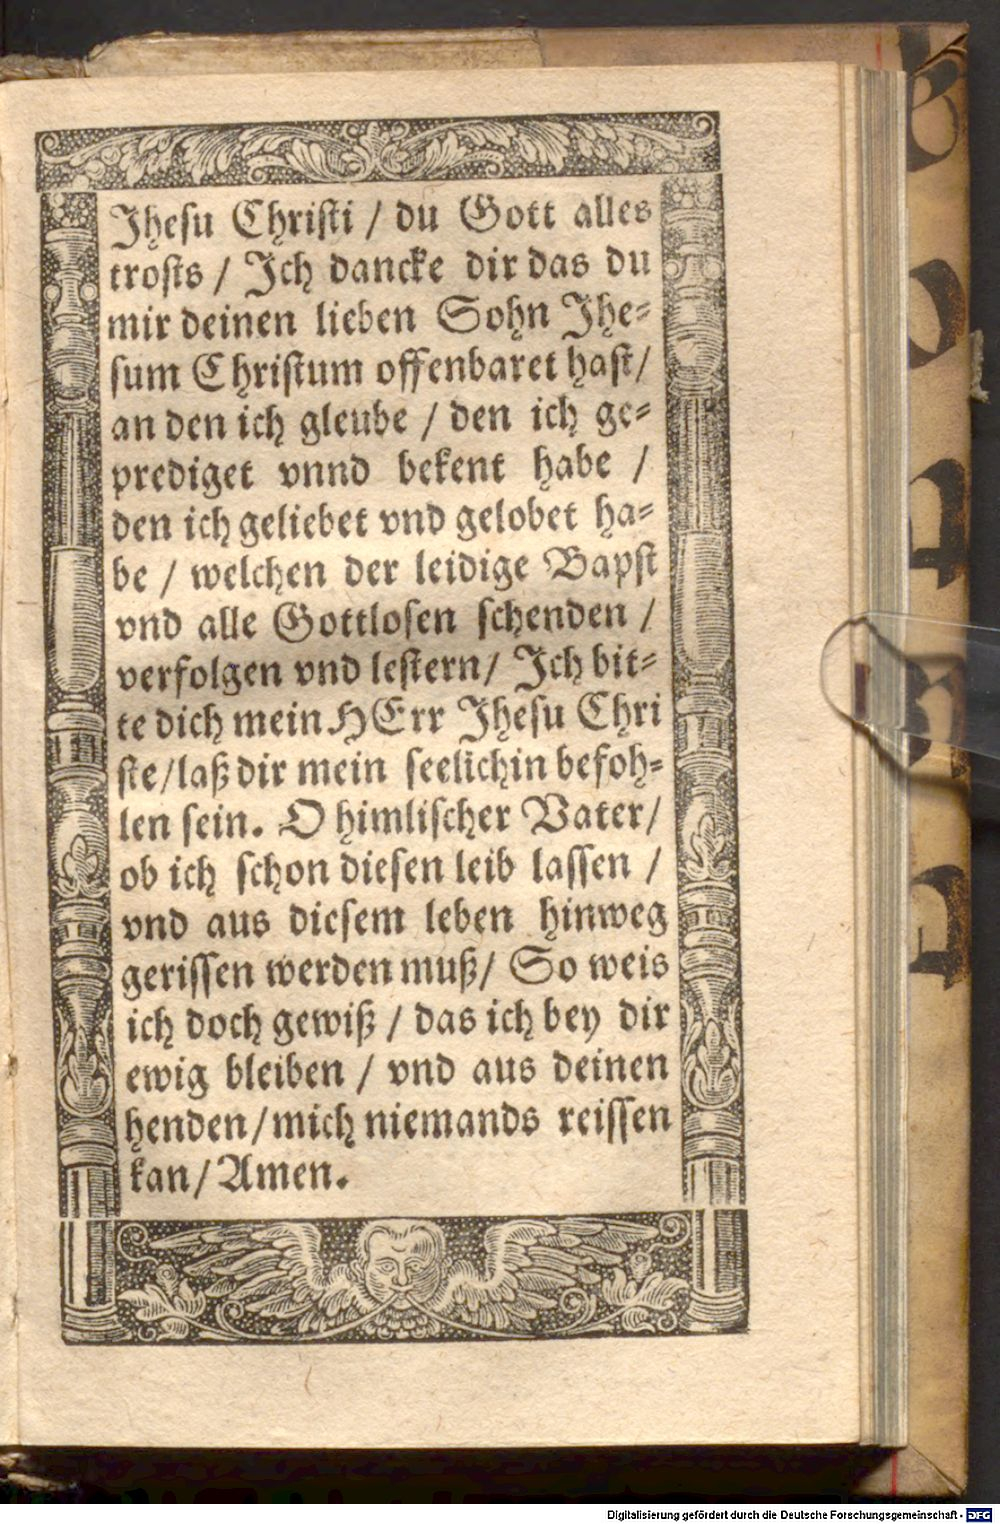 Jhesu Christi / du Gott alles
trosts / Ich dancke dir das du
mir deinen lieben Sohn Jhe⸗
sum Christum offenbaret hast/
an den ich gleube / den ich ge⸗
prediget vnnd bekent habe /
den ich geliebet vnd gelobet ha⸗
be / welchen der leidige Bapst
vnd alle Gottlosen schenden /
verfolgen vnd lestern/ Ich bit⸗
te dich mein HErr Jhesu Chri
ste/laß dir mein seelichin befoh⸗
len sein. O himlischer Vater/
ob ich schon diesen leib lassen /
vnd aus diesem leben hinweg
gerissen werden muß/ So weis
ich doch gewiß / das ich bey dir
ewig bleiben / vnd aus deinen
henden/mich niemands reissen
kan/Amen.
Digitalisierung gefördert durch die Deutsche Forschungsgemeinschaft - DFG